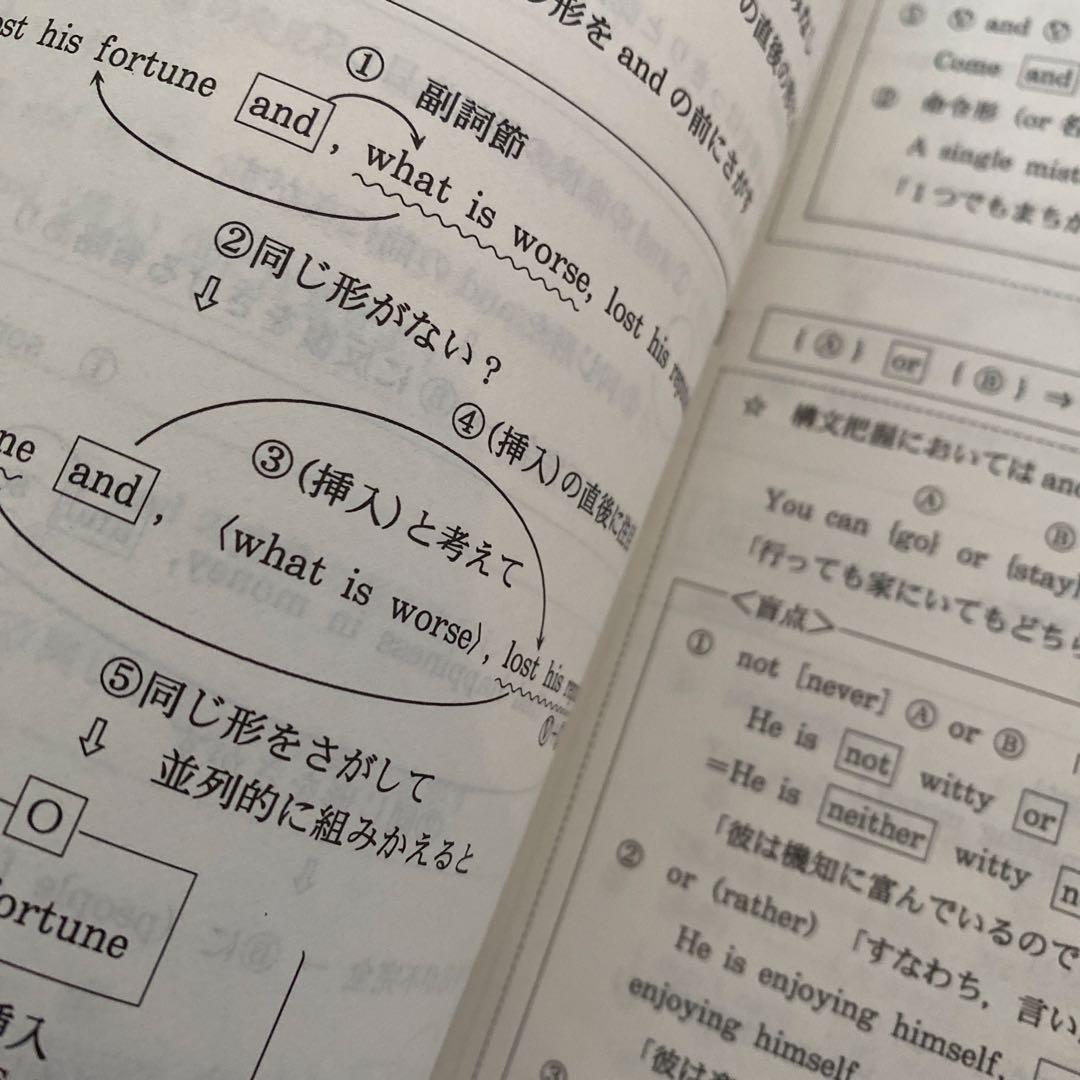 形を and の前にさがす
の直後の
① 副詞節
his fortune and, what is worse, lost his
②同じ形がない？
⇩
④(挿入)の直後に
③(挿入)と考えて
and, 〈what is worse〉, lost his
⑤同じ形をさがして
⇩ 並列的に組みかえると
O
fortune
挿入
① Ⓥ and Ⓥ
Come and
② 命令形 (or
A single
「1つでもまちが
{Ⓐ} or {Ⓑ} ⇒
☆ 構文把握においては
Ⓐ Ⓑ
You can {go} or {stay}
「行っても家にいてもどちら
＜盲点＞
① not [never] Ⓐ or Ⓑ 「
He is not witty or
=He is neither witty
「彼は機知に富んでいるので
② or (rather) 「すなわち，言い
He is enjoying himself,
enjoying himself.
「彼は
③